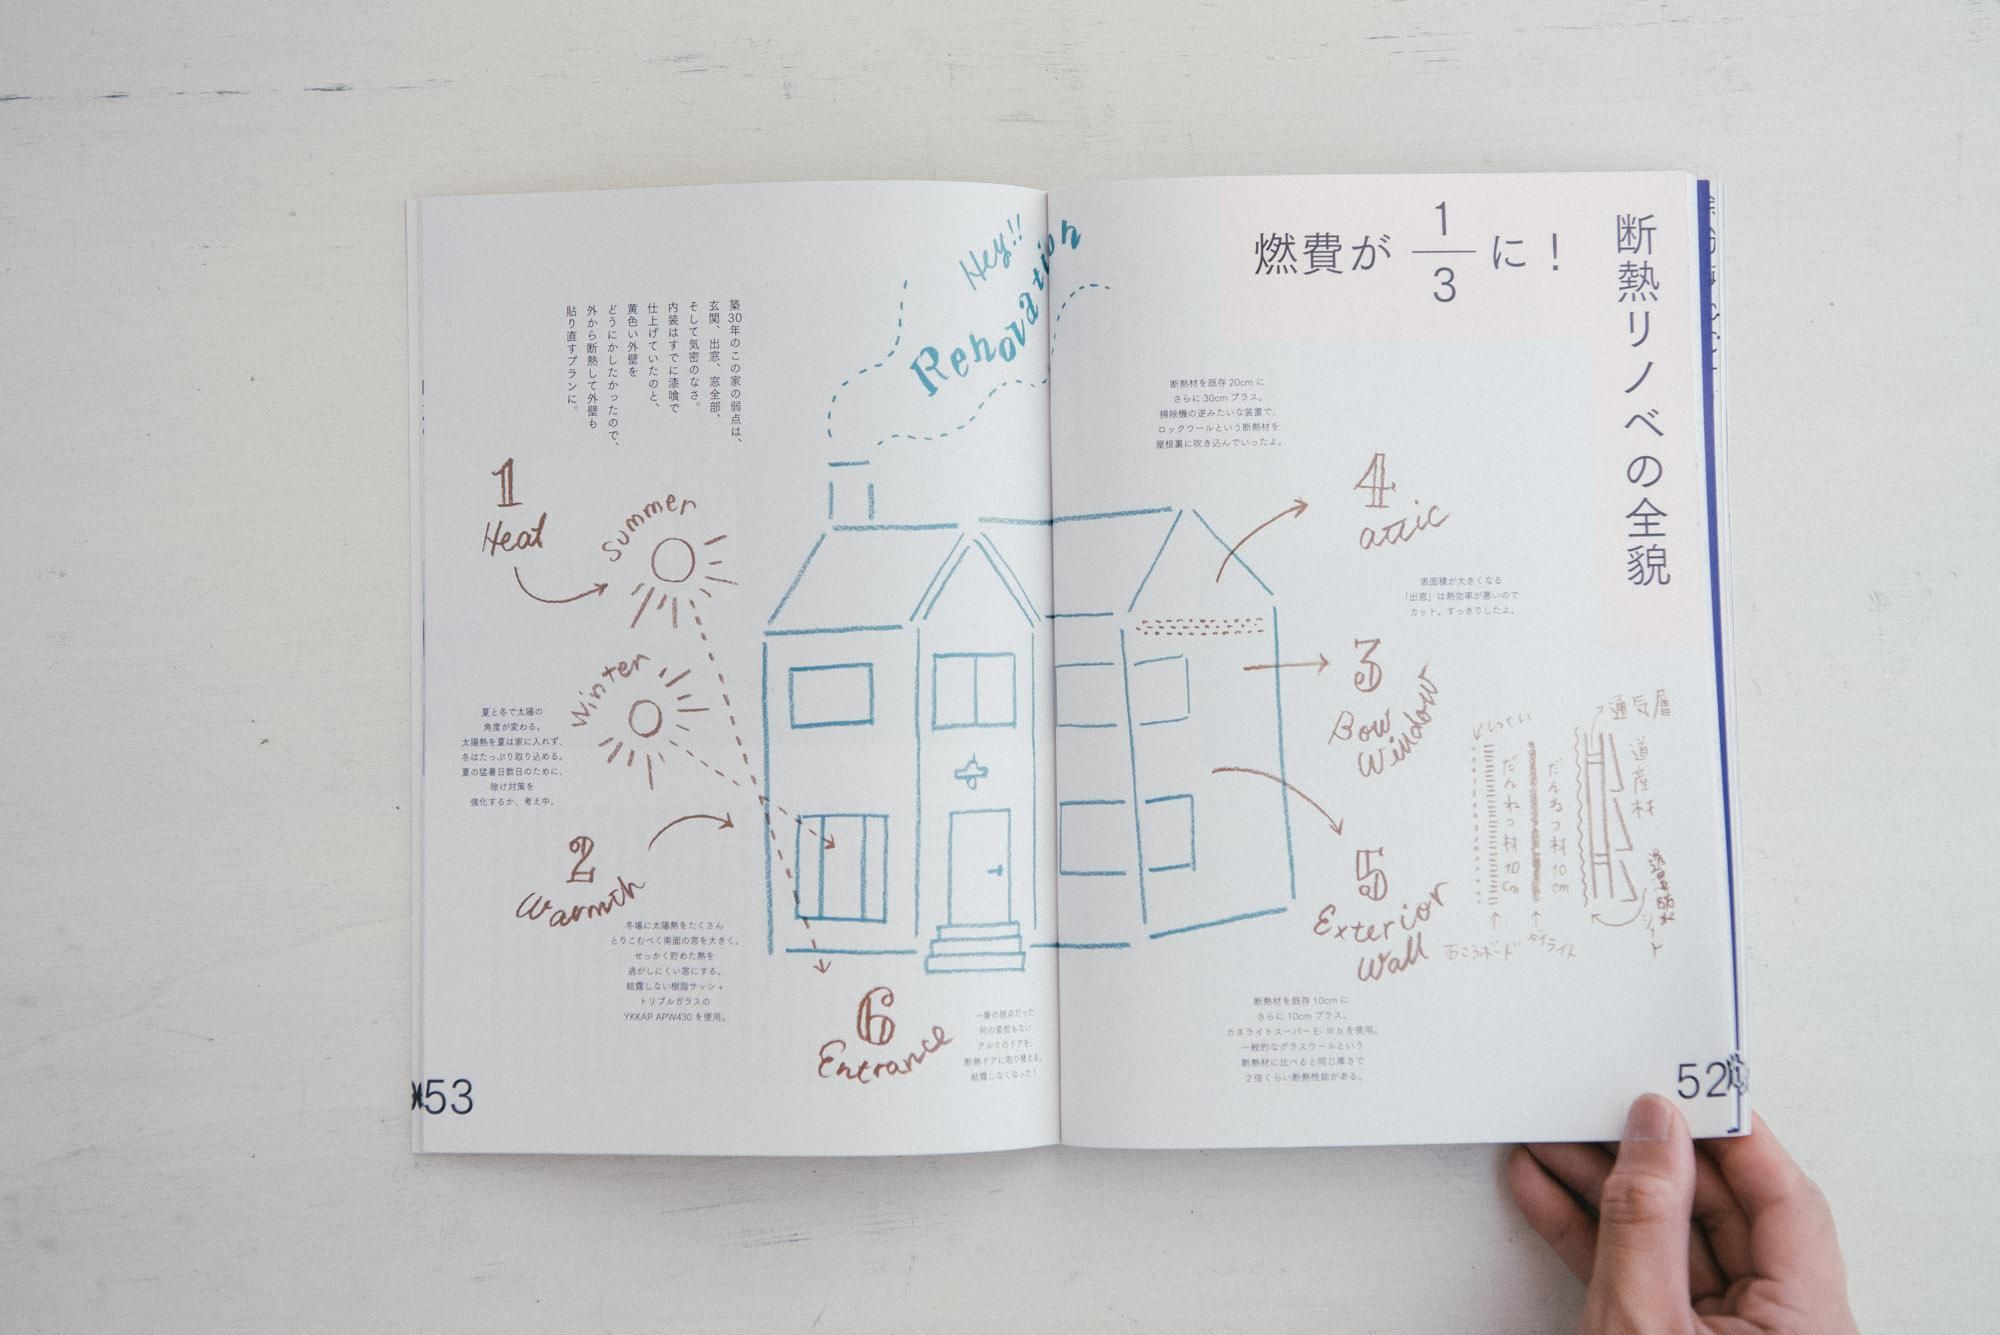 断熱リノベの全貌
燃費が 1/3 に！
断熱材を既存 20cm に
さらに 30cm プラス。
掃除機の逆みたいな装置で、
ロックウールという断熱材を
屋根裏に吹き込んでいったよ。
4
attic
表面積が大きくなる
「出窓」は熱効率が悪いので
カット。すっきりしたよ。
3
Bow
Window
5
Exterior
Wall
通気層
道産材
しっくい
だんねつ材10cm
だんねつ材10cm
シート
石こうボード
ダイライト
断熱材を既存 10cm に
さらに 10cm プラス。
カネライトスーパー E-Ⅲ b を使用。
一般的なグラスウールという
断熱材に比べると同じ厚さで
2 倍くらい断熱性能がある。
52
Hey!!
Renovation
築30年のこの家の弱点は、
玄関、出窓、窓全部、
そして気密のなさ。
内装はすでに漆喰で
仕上げていたのと、
黄色い外壁を
どうにかしたかったので、
外から断熱して外壁も
貼り直すプランに。
1
Heat
Summer
Winter
夏と冬で太陽の
角度が変わる。
太陽熱を夏は家に入れず、
冬はたっぷり取り込める。
夏の猛暑日数日のために、
除け対策を
強化するか、考え中。
2
Warmth
冬場に太陽熱をたくさん
とりこむべく南面の窓を大きく。
せっかく貯めた熱を
逃がしにくい窓にする。
結露しない樹脂サッシ＋
トリプルガラスの
YKKAP APW430 を使用。
6
Entrance
一番の弱点だった
何の変哲もない
アルミのドアを、
断熱ドアに取り替える。
結露しなくなった！
53